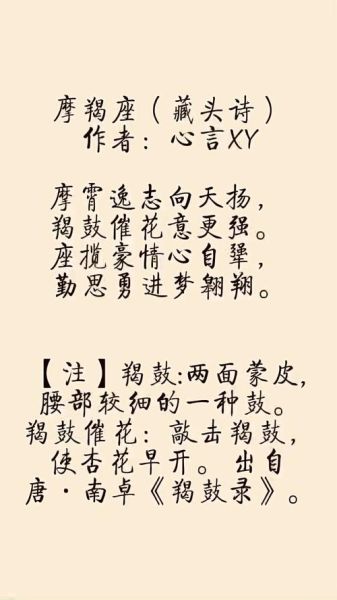 摩羯座（藏头诗）
作者：心言XY
摩霄逸志向天扬，
羯鼓催花意更强。
座揽豪情心自犟，
勤思勇进梦翱翔。
【注】羯鼓:两面蒙皮，
腰部较细的一种鼓。
羯鼓催花：敲击羯鼓，
使杏花早开。出自
唐·南卓《羯鼓录》。